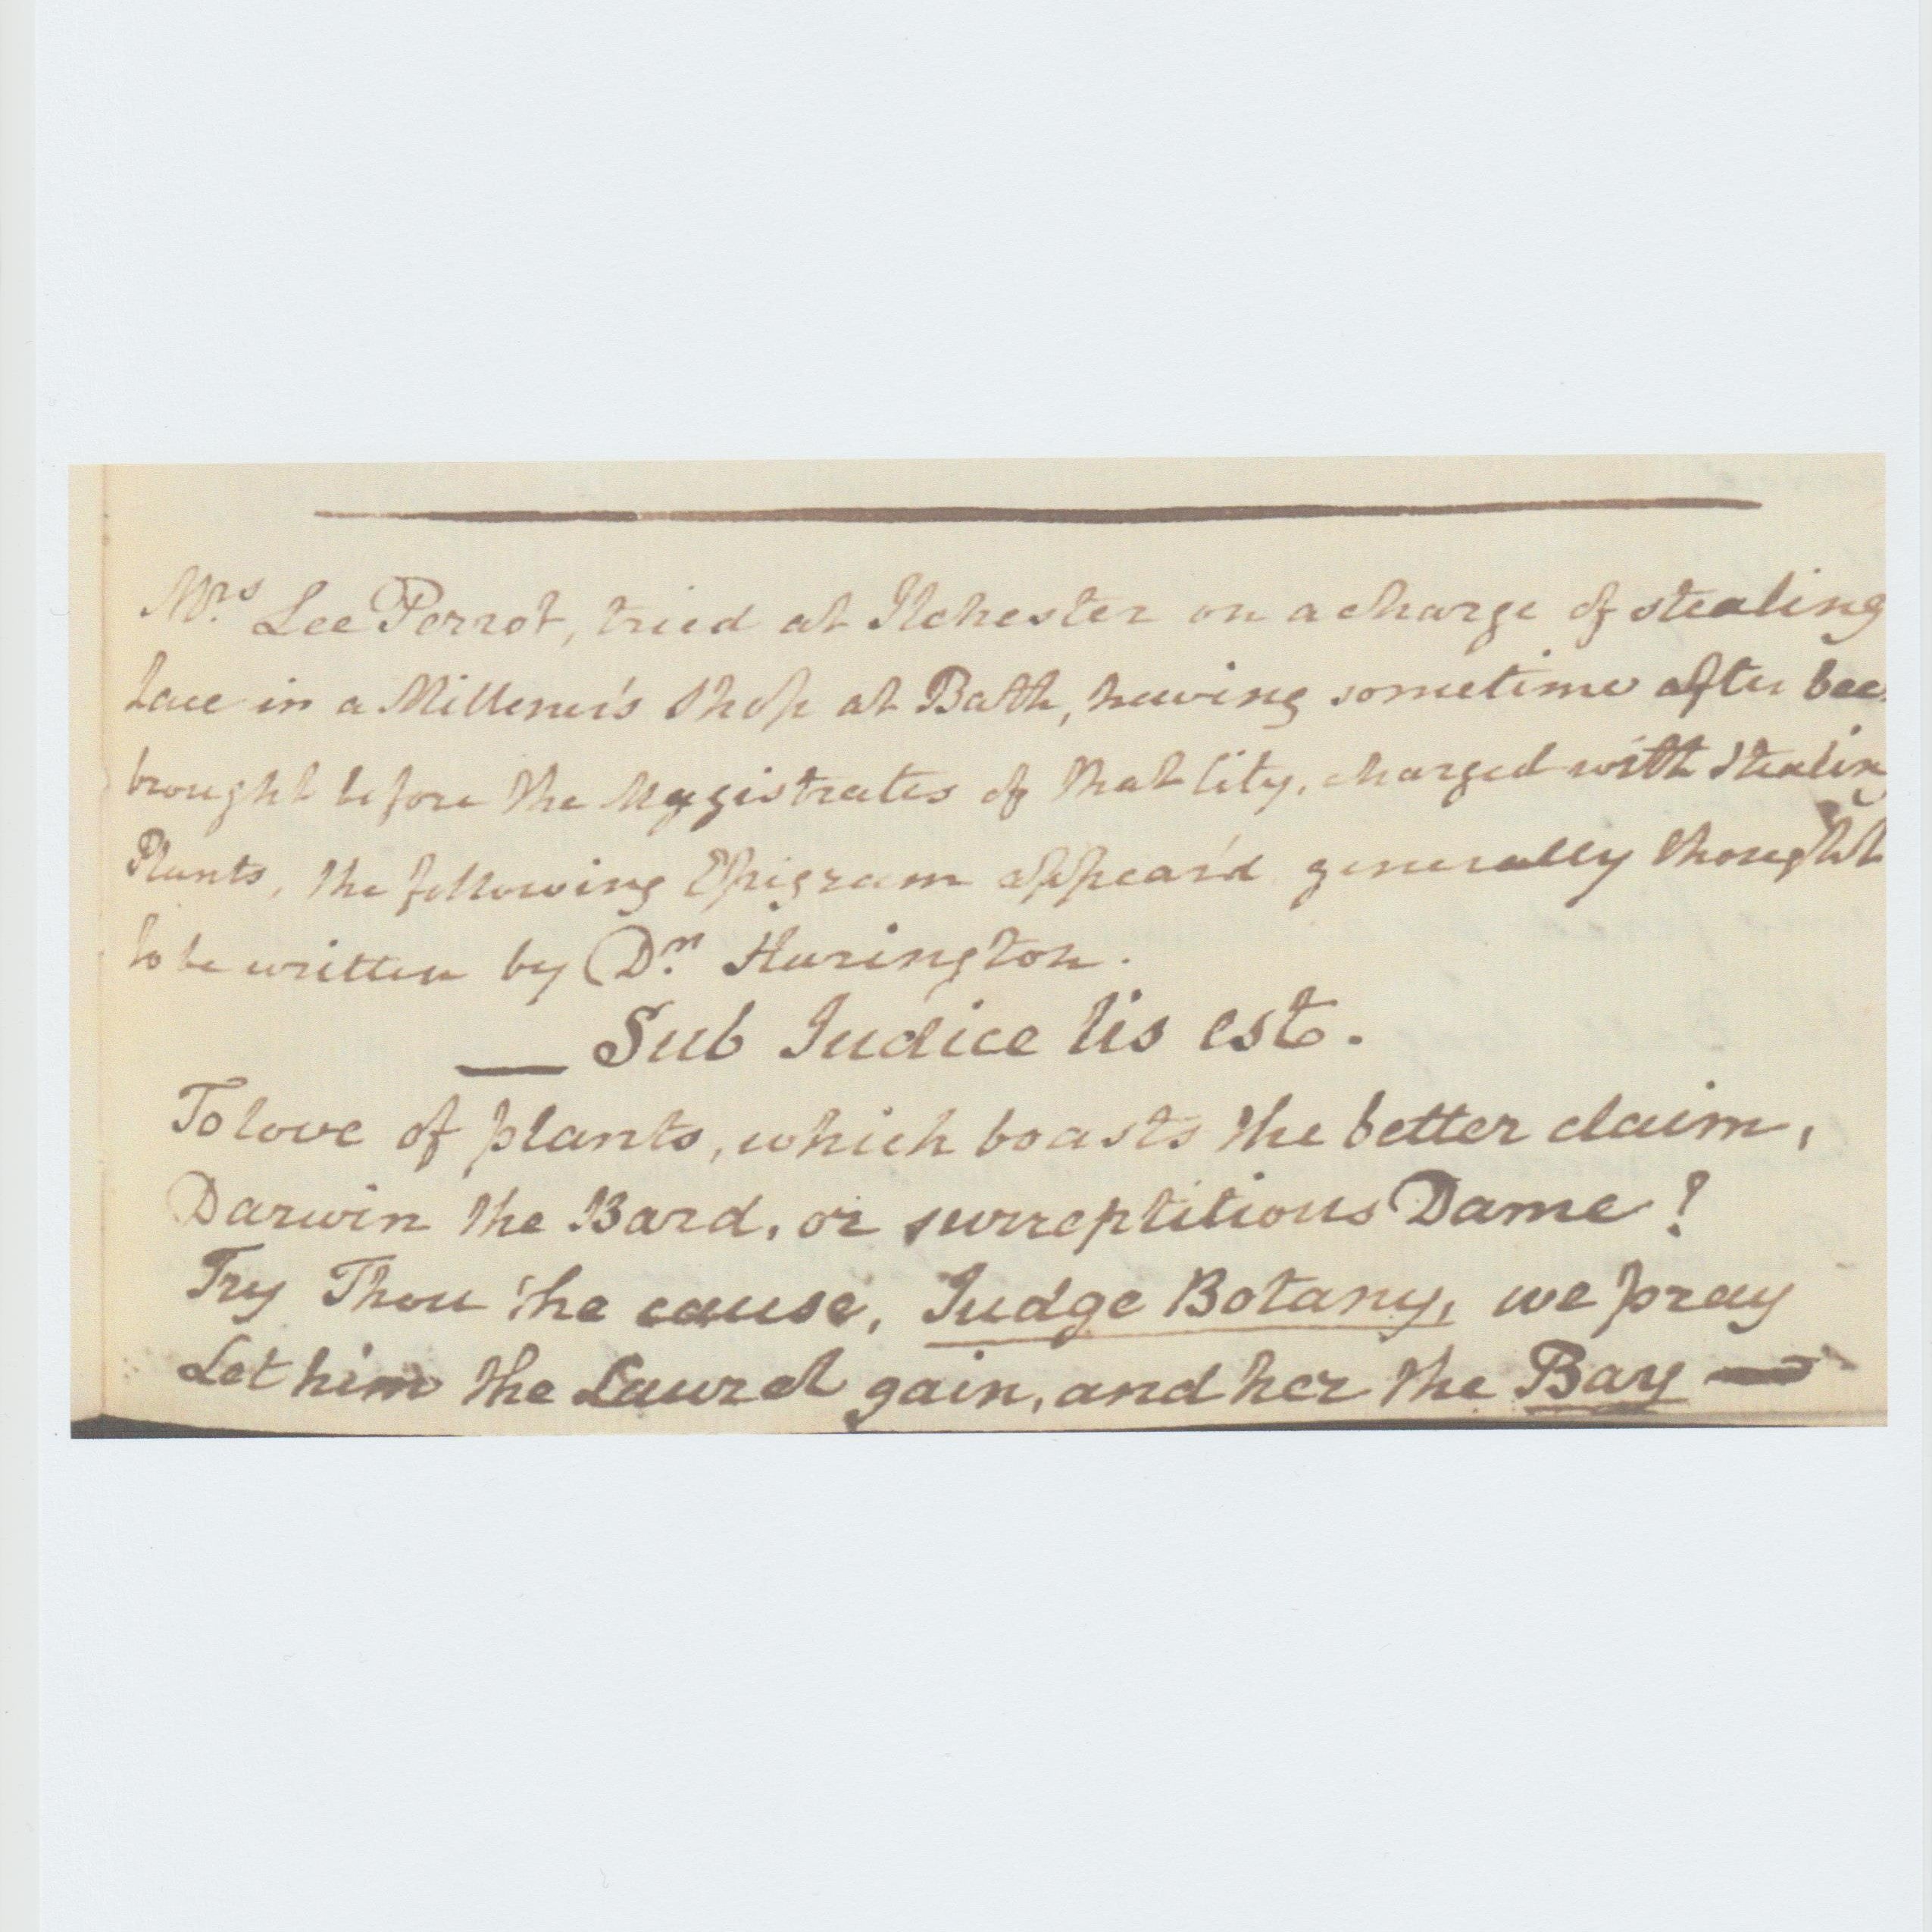 Mrs Lee Perrot, tried at Ilchester on a charge of stealing
Lace in a Millener's Shop at Bath, having sometime after bee
brought before the Magistrates of that City, charged with Stealin
Plants, the following Epigram appear'd generally thought
to be written by Dr. Harington.
— Sub Judice lis est.
To love of plants, which boasts the better claim,
Darwin the Bard, or surreptitious Dame?
Try Thou the cause, Judge Botany, we pray
Let him the Laurel gain, and her the Bay —